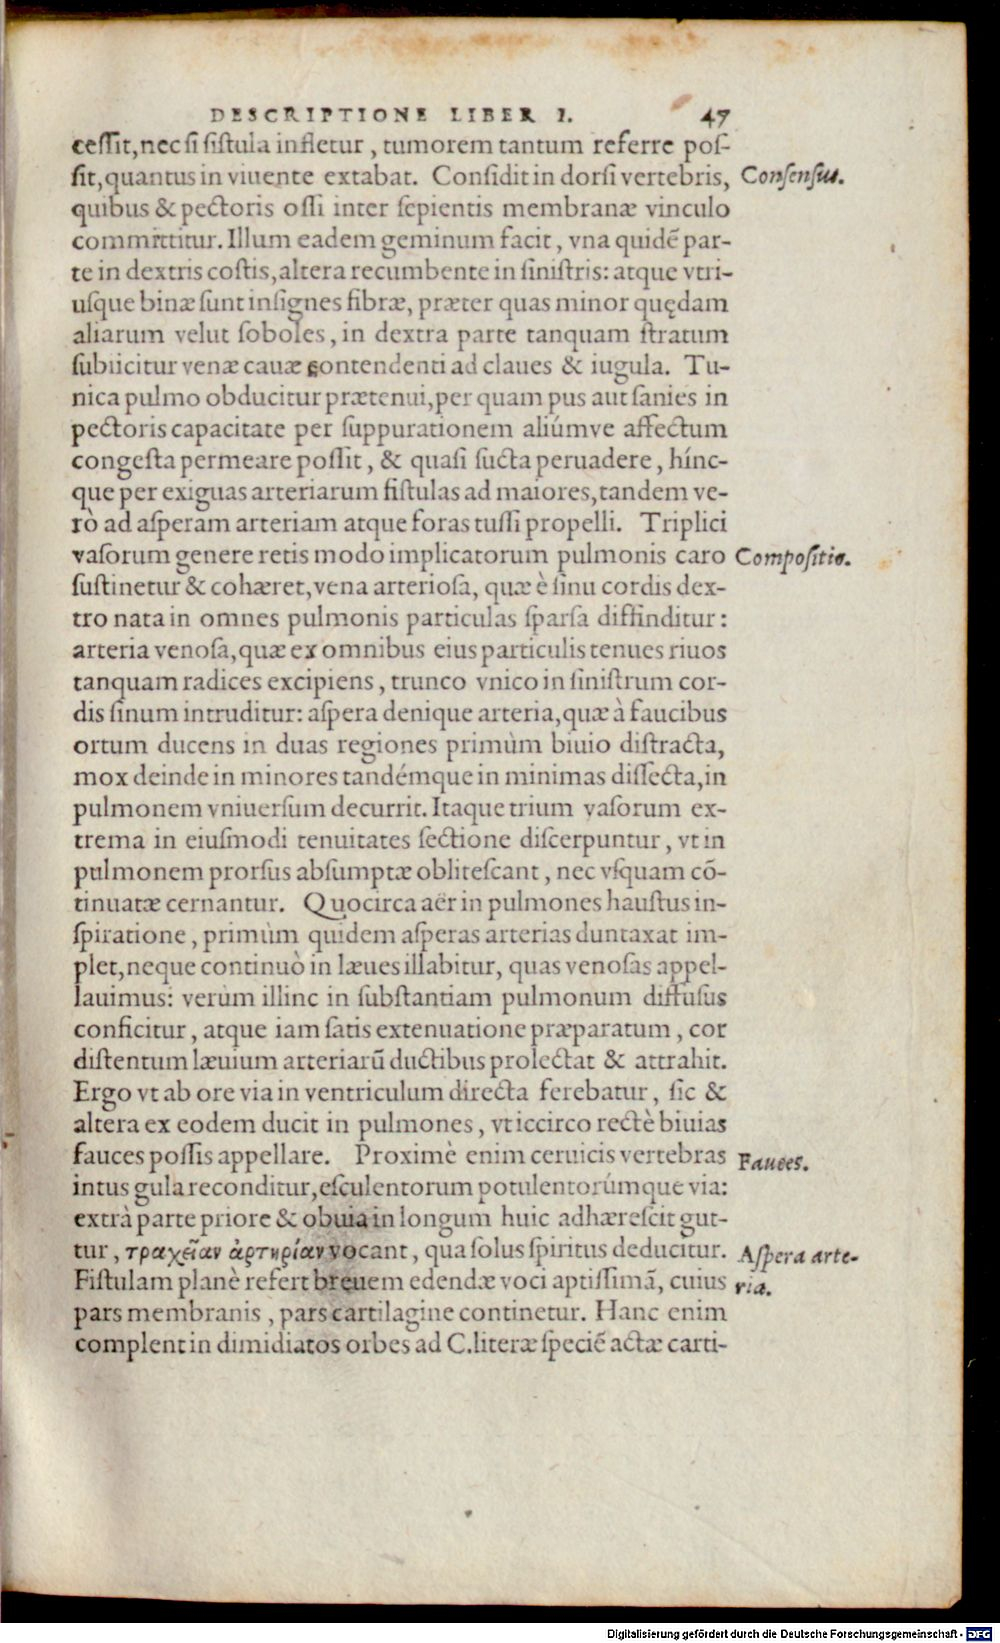 DESCRIPTIONE LIBER I. 47
cessit, nec si fistula infletur, tumorem tantum referre pos-
sit, quantus in viuente extabat. Considit in dorsi vertebris, Consensus.
quibus & pectoris ossi inter sepientis membranæ vinculo
committitur. Illum eadem geminum facit, vna quidē par-
te in dextris costis, altera recumbente in sinistris: atque vtri-
usque binæ sunt insignes fibræ, præter quas minor quędam
aliarum velut soboles, in dextra parte tanquam stratum
subiicitur venæ cauæ contendenti ad claues & iugula. Tu-
nica pulmo obducitur prætenui, per quam pus aut sanies in
pectoris capacitate per suppurationem aliúmve affectum
congesta permeare possit, & quasi sucta peruadere, hínc-
que per exiguas arteriarum fistulas ad maiores, tandem ve-
rò ad asperam arteriam atque foras tussi propelli. Triplici
vasorum genere retis modo implicatorum pulmonis caro Compositio.
sustinetur & cohæret, vena arteriosa, quæ è sinu cordis dex-
tro nata in omnes pulmonis particulas sparsa diffinditur:
arteria venosa, quæ ex omnibus eius particulis tenues riuos
tanquam radices excipiens, trunco vnico in sinistrum cor-
dis sinum intruditur: aspera denique arteria, quæ à faucibus
ortum ducens in duas regiones primùm biuio distracta,
mox deinde in minores tandémque in minimas dissecta, in
pulmonem vniuersum decurrit. Itaque trium vasorum ex-
trema in eiusmodi tenuitates sectione discerpuntur, vt in
pulmonem prorsus absumptæ oblitescant, nec vsquam cō-
tinuatæ cernantur. Quocirca aër in pulmones haustus in-
spiratione, primùm quidem asperas arterias duntaxat im-
plet, neque continuò in læues illabitur, quas venosas appel-
lauimus: verùm illinc in substantiam pulmonum diffusus
conficitur, atque iam satis extenuatione præparatum, cor
distentum læuium arteriarū ductibus prolectat & attrahit.
Ergo vt ab ore via in ventriculum directa ferebatur, sic &
altera ex eodem ducit in pulmones, vt iccirco rectè biuias
fauces possis appellare. Proximè enim ceruicis vertebras Fauces.
intus gula reconditur, esculentorum potulentorúmque via:
extrà parte priore & obuia in longum huic adhærescit gut-
tur, τραχεῖαν ἀρτηρίαν vocant, qua solus spiritus deducitur. Aspera arte-
Fistulam planè refert breuem edendæ voci aptissimā, cuius ria.
pars membranis, pars cartilagine continetur. Hanc enim
complent in dimidiatos orbes ad C. literæ speciē actæ carti-
Digitalisierung gefördert durch die Deutsche Forschungsgemeinschaft - DFG